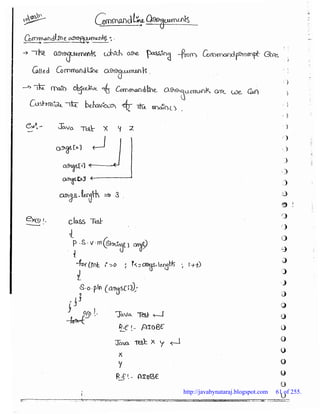 Command Line Arguments
Command Line arguments :-
→ The arguments which are passing from Command prompt are
Called Command Line arguments.
→ The main objective of Command Line arguments are we can
Customize the behaviour of the main().
Ex:- Java Test X Y Z
args[0]
args[1]
args[2]
args.length => 3.
Exp:- class Test
{
P.S.V.m(String[] args)
{
for(int i=0 ; i<=args.length ; i++)
{
S.o.pln(args[i]);
}
}
}
Java Test ↵
R.E:- AIOBE
Java Test X Y ↵
X
Y
R.E:- AIOBE
http://javabynataraj.blogspot.com 61 of 255.